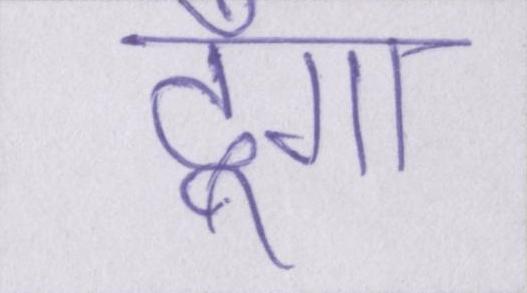 दूँगा